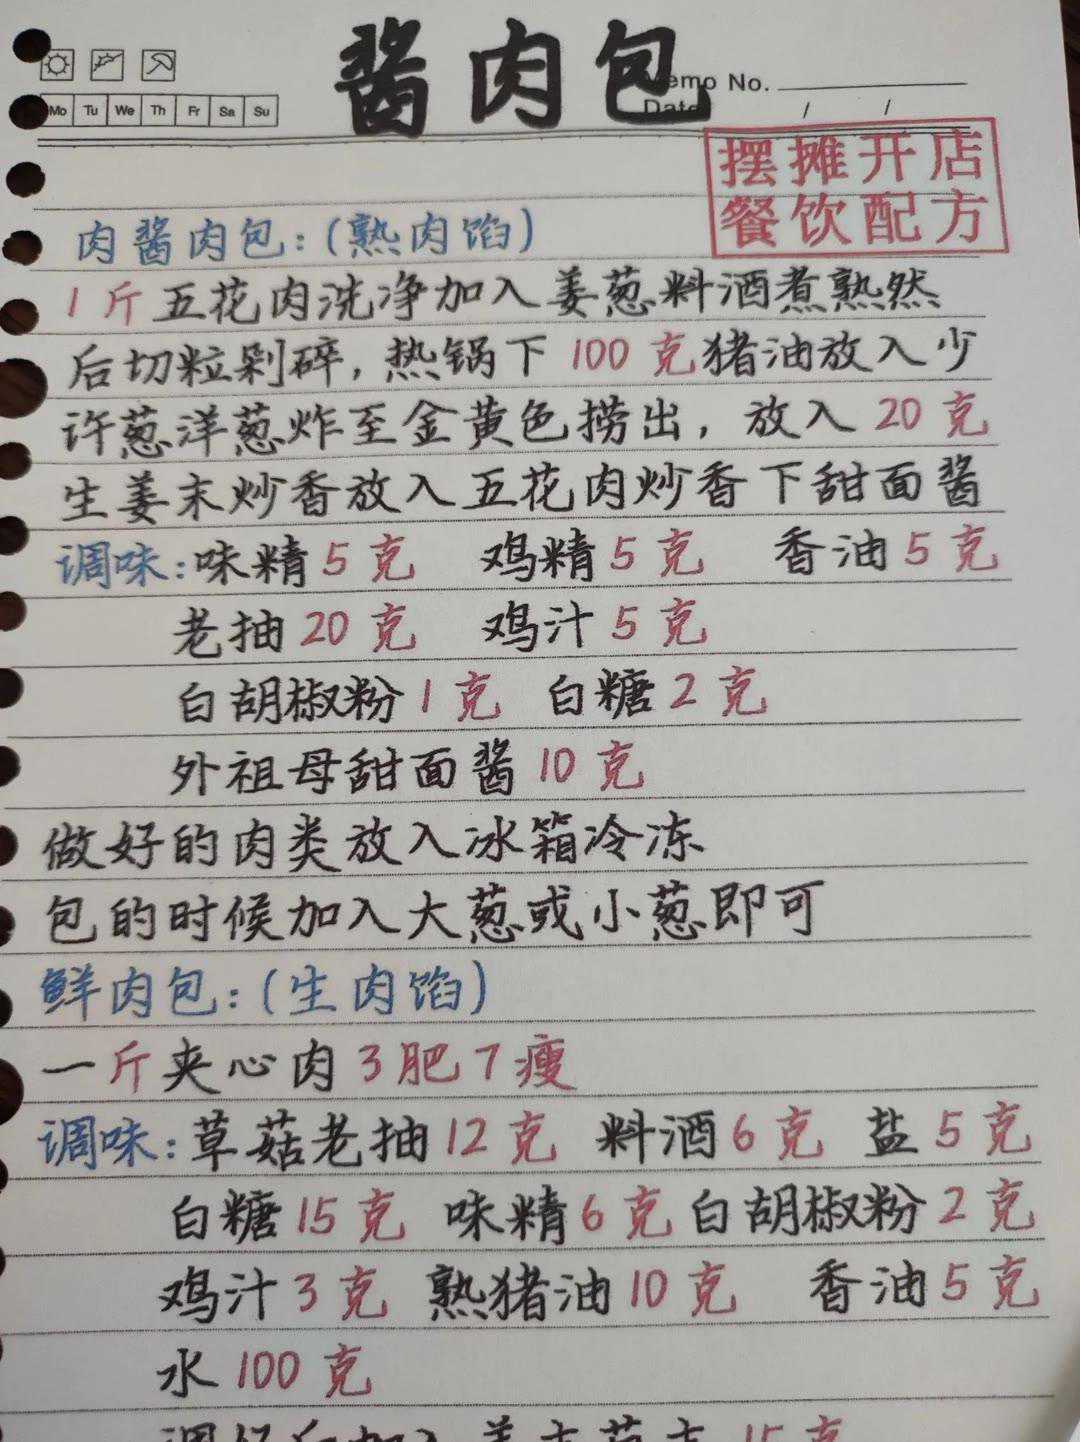 酱肉包
Memo No.
Date / /
Mo Tu We Th Fr Sa Su
摆摊开店
餐饮配方
肉酱肉包:(熟肉馅)
1斤五花肉洗净加入姜葱料酒煮熟然
后切粒剁碎,热锅下100克猪油放入少
许葱洋葱炸至金黄色捞出,放入20克
生姜末炒香放入五花肉炒香下甜面酱
调味:味精5克 鸡精5克 香油5克
老抽20克 鸡汁5克
白胡椒粉1克 白糖2克
外祖母甜面酱10克
做好的肉类放入冰箱冷冻
包的时候加入大葱或小葱即可
鲜肉包:(生肉馅)
一斤夹心肉3肥7瘦
调味:草菇老抽12克 料酒6克 盐5克
白糖15克 味精6克 白胡椒粉2克
鸡汁3克 熟猪油10克 香油5克
水100克
调好后加入姜末 15克